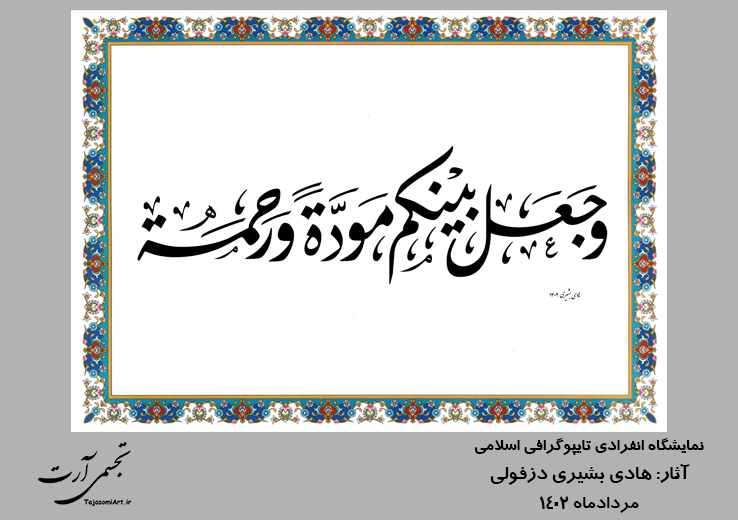 وَجَعَلَ بَيْنَكُم مَوَدَّةً وَرَحمَة
هادی بشیری ۱۴۰۲
نمایشگاه انفرادی تایپوگرافی اسلامی
آثار: هادی بشیری دزفولی
مردادماه ۱۴۰۲
تجسمی آرت
TajasomiArt.ir